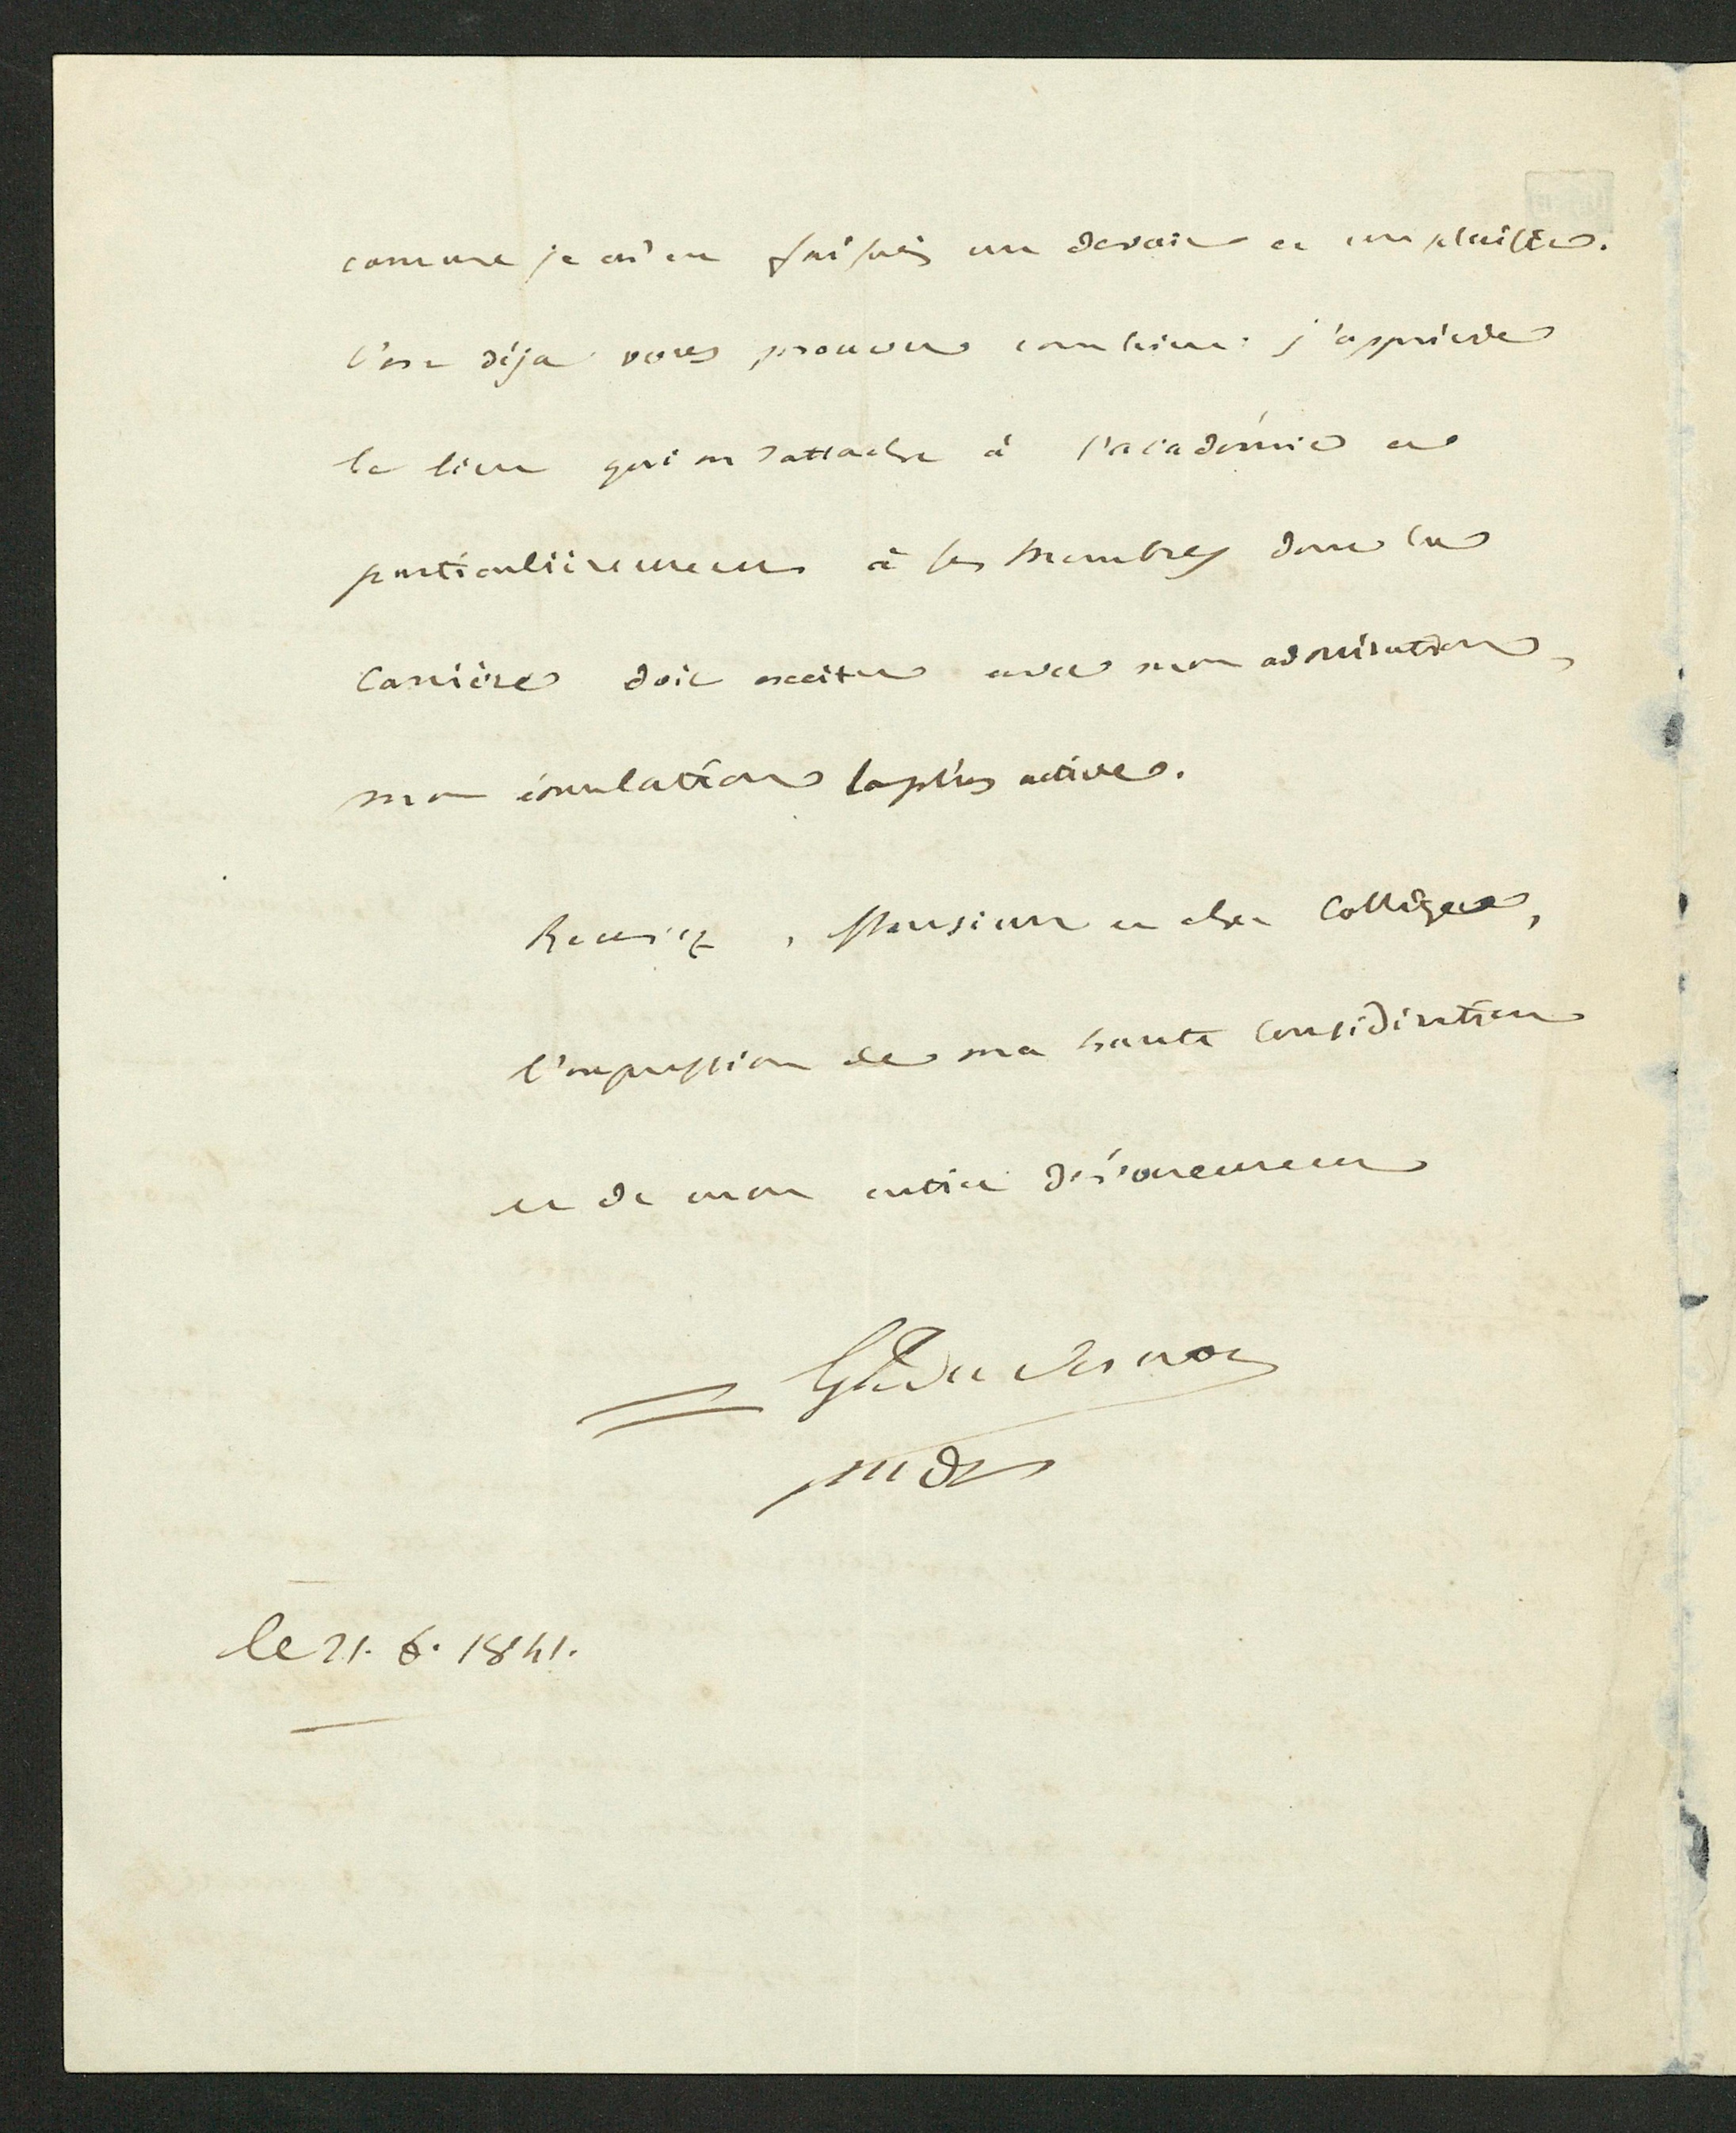 comme je m'en faisais un devoir et un plaisir.
C'est déja vous prouver combien j'apprécie
le lien qui m'attache à l'académie et
particulièrement à ses membres dont la
carrière doit exciter avec mon admiration,
mon émulation la plus active.
Recevez, Monsieur et cher Collègue,
l'expression de ma haute considération
et de mon entier dévouement
le 21. 6. 1841.